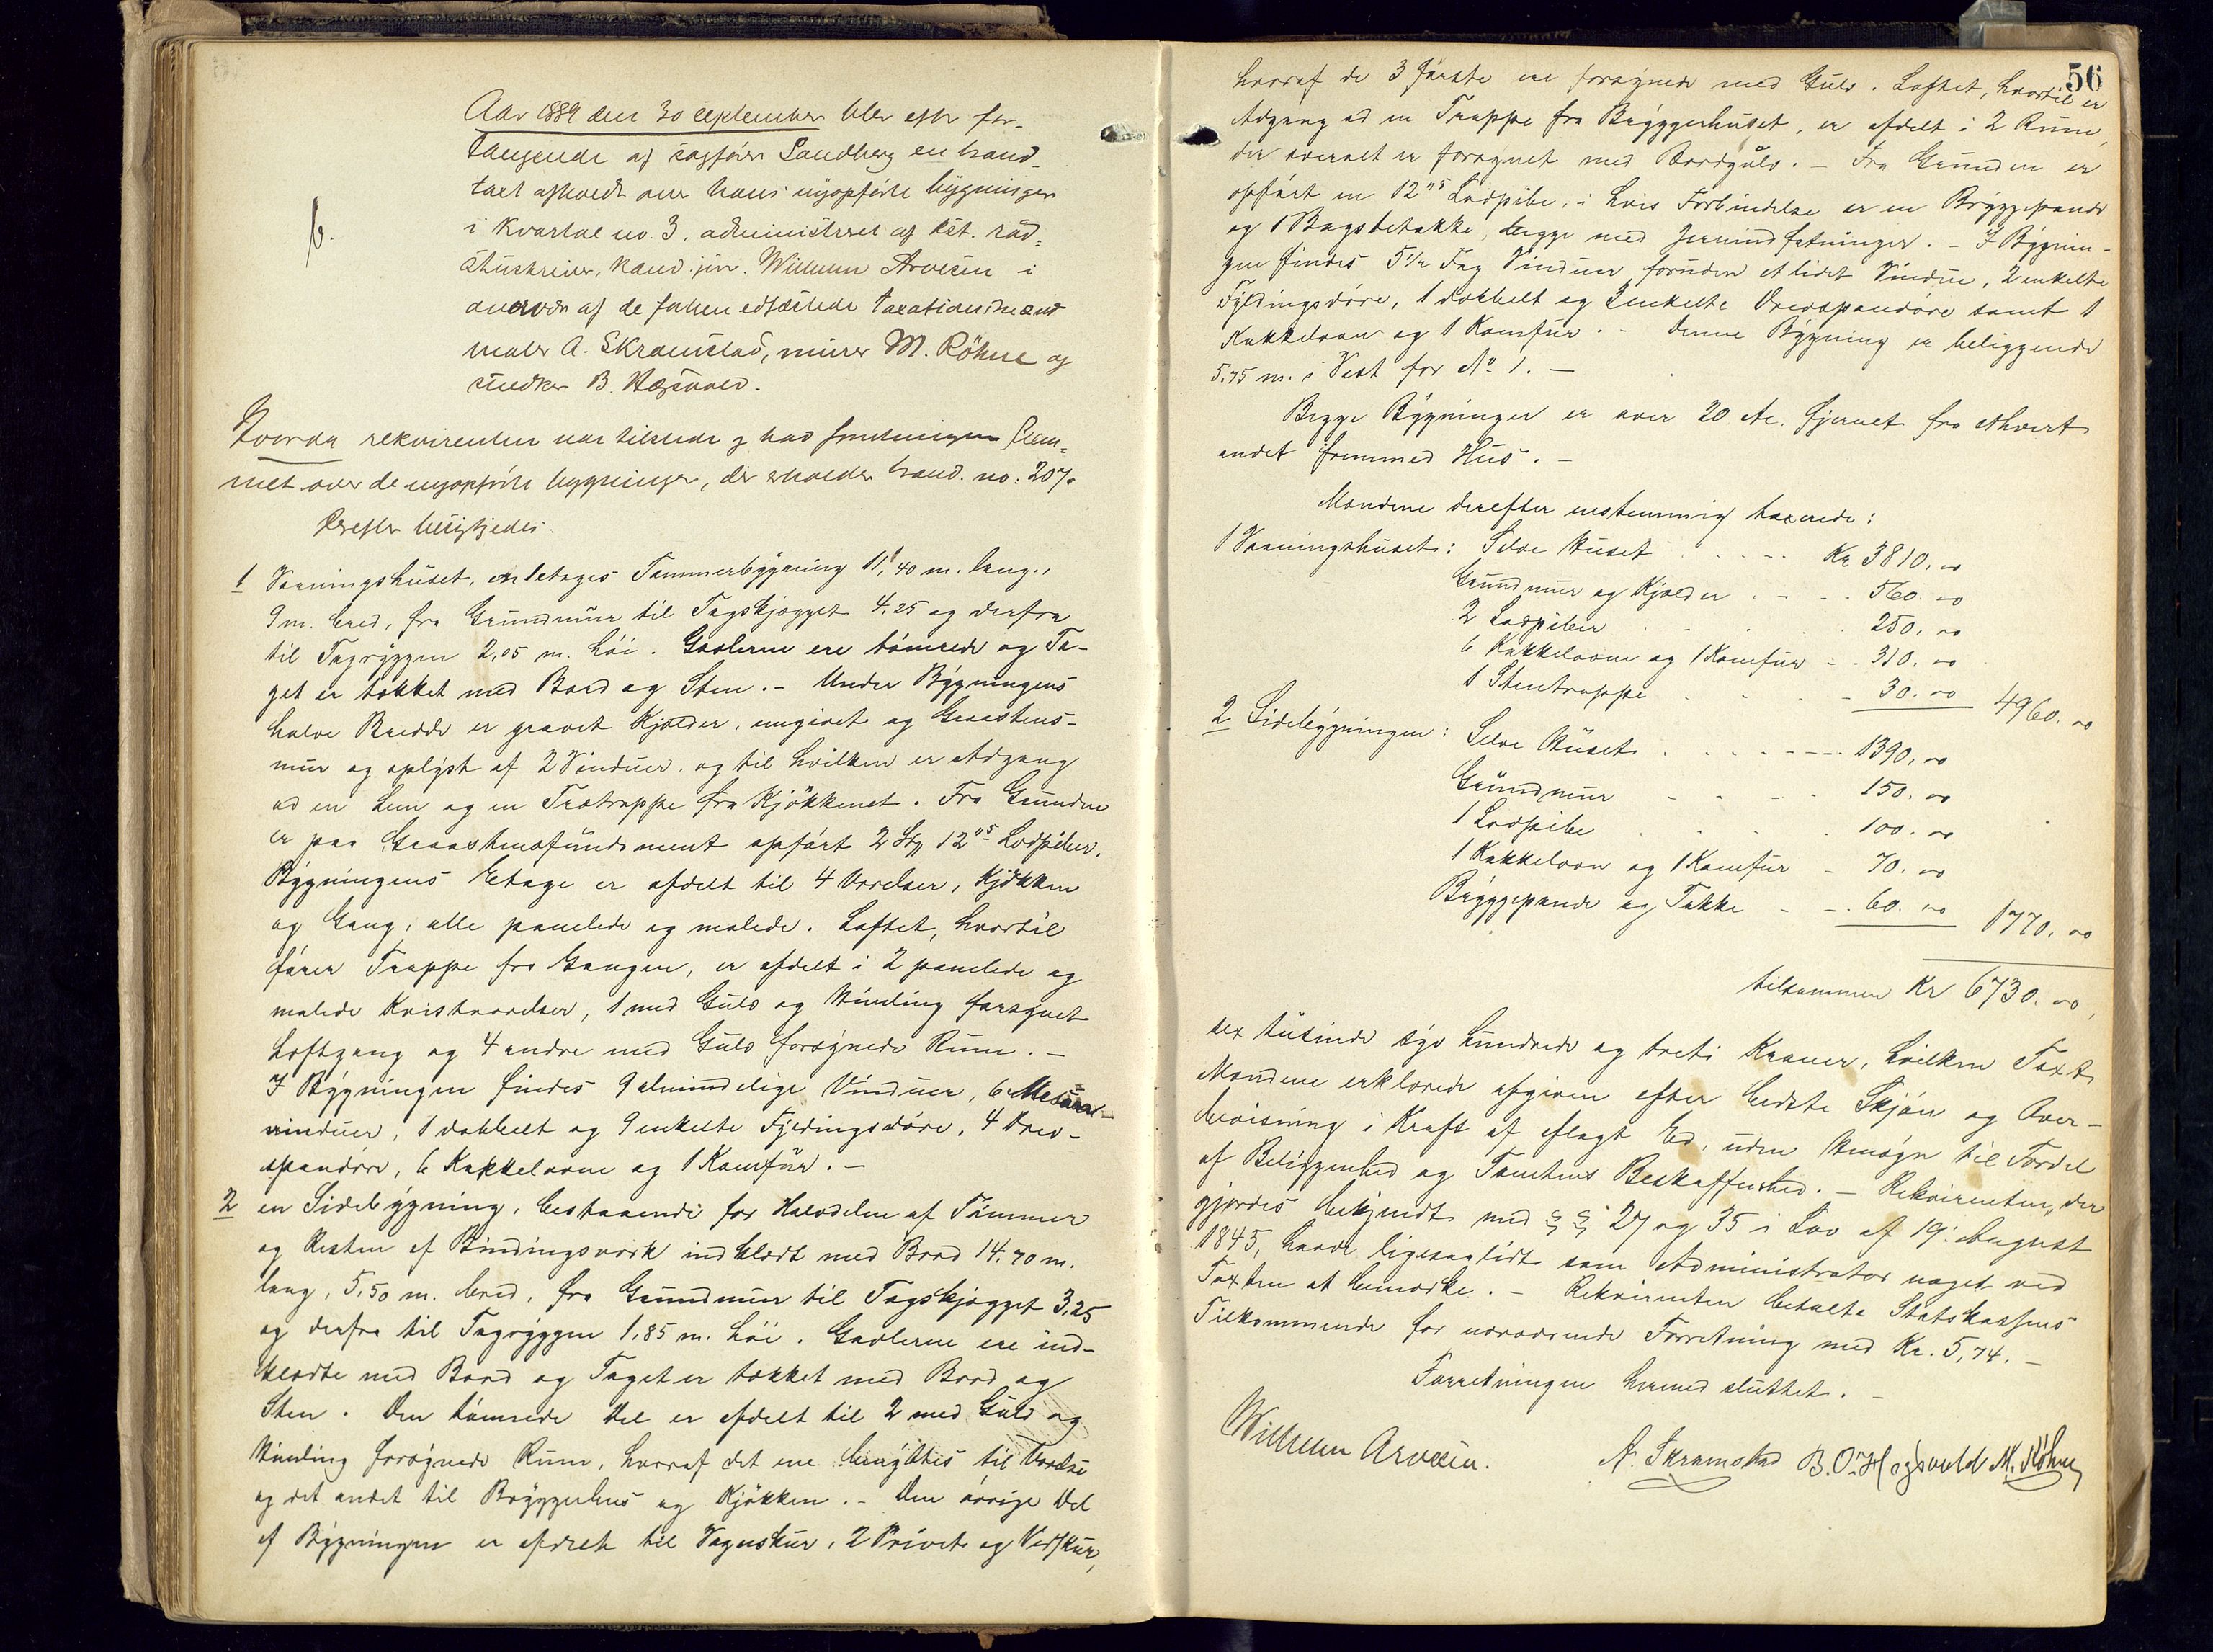 Aar 1889 den 30 september blev efter for-
langende af sagfører Sandberg en brand-
taxt afholdt over hans nyopførte bygninger
i Kvartal no. 3, administreret af kst. råd-
stuskriver, kand. jur. Wilhelm Arvesen i
overvær af de forhen edfæstede taxationsmænd
maler A. Skramstad, murer M. Röhne og
snedker B. Hægsvold.
b.
Hvorda rekvirenten var tilstede og bad forretningen frem-
met over de nyopførte bygninger, der erholder brand. no: 207.
Derefter besigtjedes:
1 Vaaningshuset, en 1 etages Tømmerbygning 11,40 m. lang.,
9 m. bred, fra Grundmur til Tagskjægget 4.25 og derfra
til Tagryggen 2,05 m. høi. Gavlerne ere tømrede og Ta-
get er tækket med Bord og Sten. – Under Bygningens
halve Bredde er gravet Kjælder, omgivet af Graastens-
mur og oplyst af 2 Vinduer, og til hvilken er Adgang
ad en Lem og en Trætrappe fra Kjøkkenet. Fra Grunden
er paa Graastensfundament opført 2 Stk 12"s Lodpiber.
Bygningens Etage er afdelt til 4 Værelser, Kjøkken
og Gang, alle panelede og malede. Loftet, hvortil
fører Trappe fra Gangen, er afdelt i 2 panelede og
malede Kvistværelser, 1 med Gulv og Himling forsynet
Loftgang og 4 andre med Gulv forsynede Rum. –
I Bygningen findes 9 almindelige Vinduer, 6
vinduer, 1 dobbelt og 9 enkelte Fyldingsdøre, 4 Drev-
spandøre, 6 Kakkelovne og 1 Komfur. –
2 en Sidebygning, bestaaende for Halvdelen af Tømmer
og Resten af Bindingsværk indklædt med Bord 14.70 m.
lang, 5.50 m. bred, fra Grundmur til Tagskjægget 3,25
og derfra til Tagryggen 1,85 m. høi. Gavlerne ere ind-
klædte med Bord og Taget er tækket med Bord og
Sten. Den tømrede Del er afdelt til 2 med Gulv og
Himling forsynede Rum, hvoraf det ene benyttes til Værelse
og det andet til Bryggerhus og Kjøkken. – Den øvrige Del
af Bygningen er afdelt til Vognskur, 2 Privet og Vedskur,
56
hvoraf de 3 første ere forsynede med Gulv. Loftet, hvortil er
Adgang ad en Trappe fra Bryggerhuset, er afdelt i 2 Rum,
der overalt er forsynet med Bordgulv. – Fra Grunden er
opført en 12"s Lodpibe, i hvis Forbindelse er en Bryggepande
og 1 Bagstetakke, begge med Jernindfatninger. – I Bygnin-
gen findes 5 1/2 Fag Vinduer foruden et lidet Vindue, 2 enkelte
Fyldingsdøre, 1 dobbelt og 3 enkelte Drevspandøre samt 1
Kakkelovn og 1 Komfur. – Denne Bygning er beliggende
5.75 m. i Vest for No 1. –
Begge Bygninger er over 20 Al. fjernet fra ethvert
andet fremmed Hus. –
Mændene derefter enstemmig taxerede:
1 Vaaningshuset: Selve Huset . . . . Kr 3810,00
Grundmur og Kjælder . . . 560.00
2 Lodpiber . . . . 250,00
6 Kakkelovne og 1 Komfur . . 310.00
1 Stentrappe . . . . 30.00 4960.00
2 Sidebygningen: Selve Huset . . . . . 1390,00
Grundmur . . . . 150.00
1 Lodpibe . . . . 100.00
1 Kakkelovn og 1 Komfur . 70.00
Bryggepande og Takke . . . 60.00 1770.00
tilsammen Kr 6730.00,
sex tusinde syv hundrede og treti Kroner, hvilken Taxt
Mændene erklærede afgiven efter bedste Skjøn og Over-
bevisning i Kraft af aflagt Ed, uden Hensyn til Fordel
af Beliggenhed og Tomtens Beskaffenhed. – Rekvirenten, der
gjordes bekjendt med §§ 27 og 35 i Lov af 19. August
1845, havde ligesaalidt som Administrator noget ved
Taxten at bemærke. – Rekvirenten betalte Statskassens
Tilkommende for nærværende Forretning med Kr. 5,74. –
Forretningen hermed sluttet. –
Wilhelm Arvesen. A. Skramstad B. O. Hægsvold M. Röhne